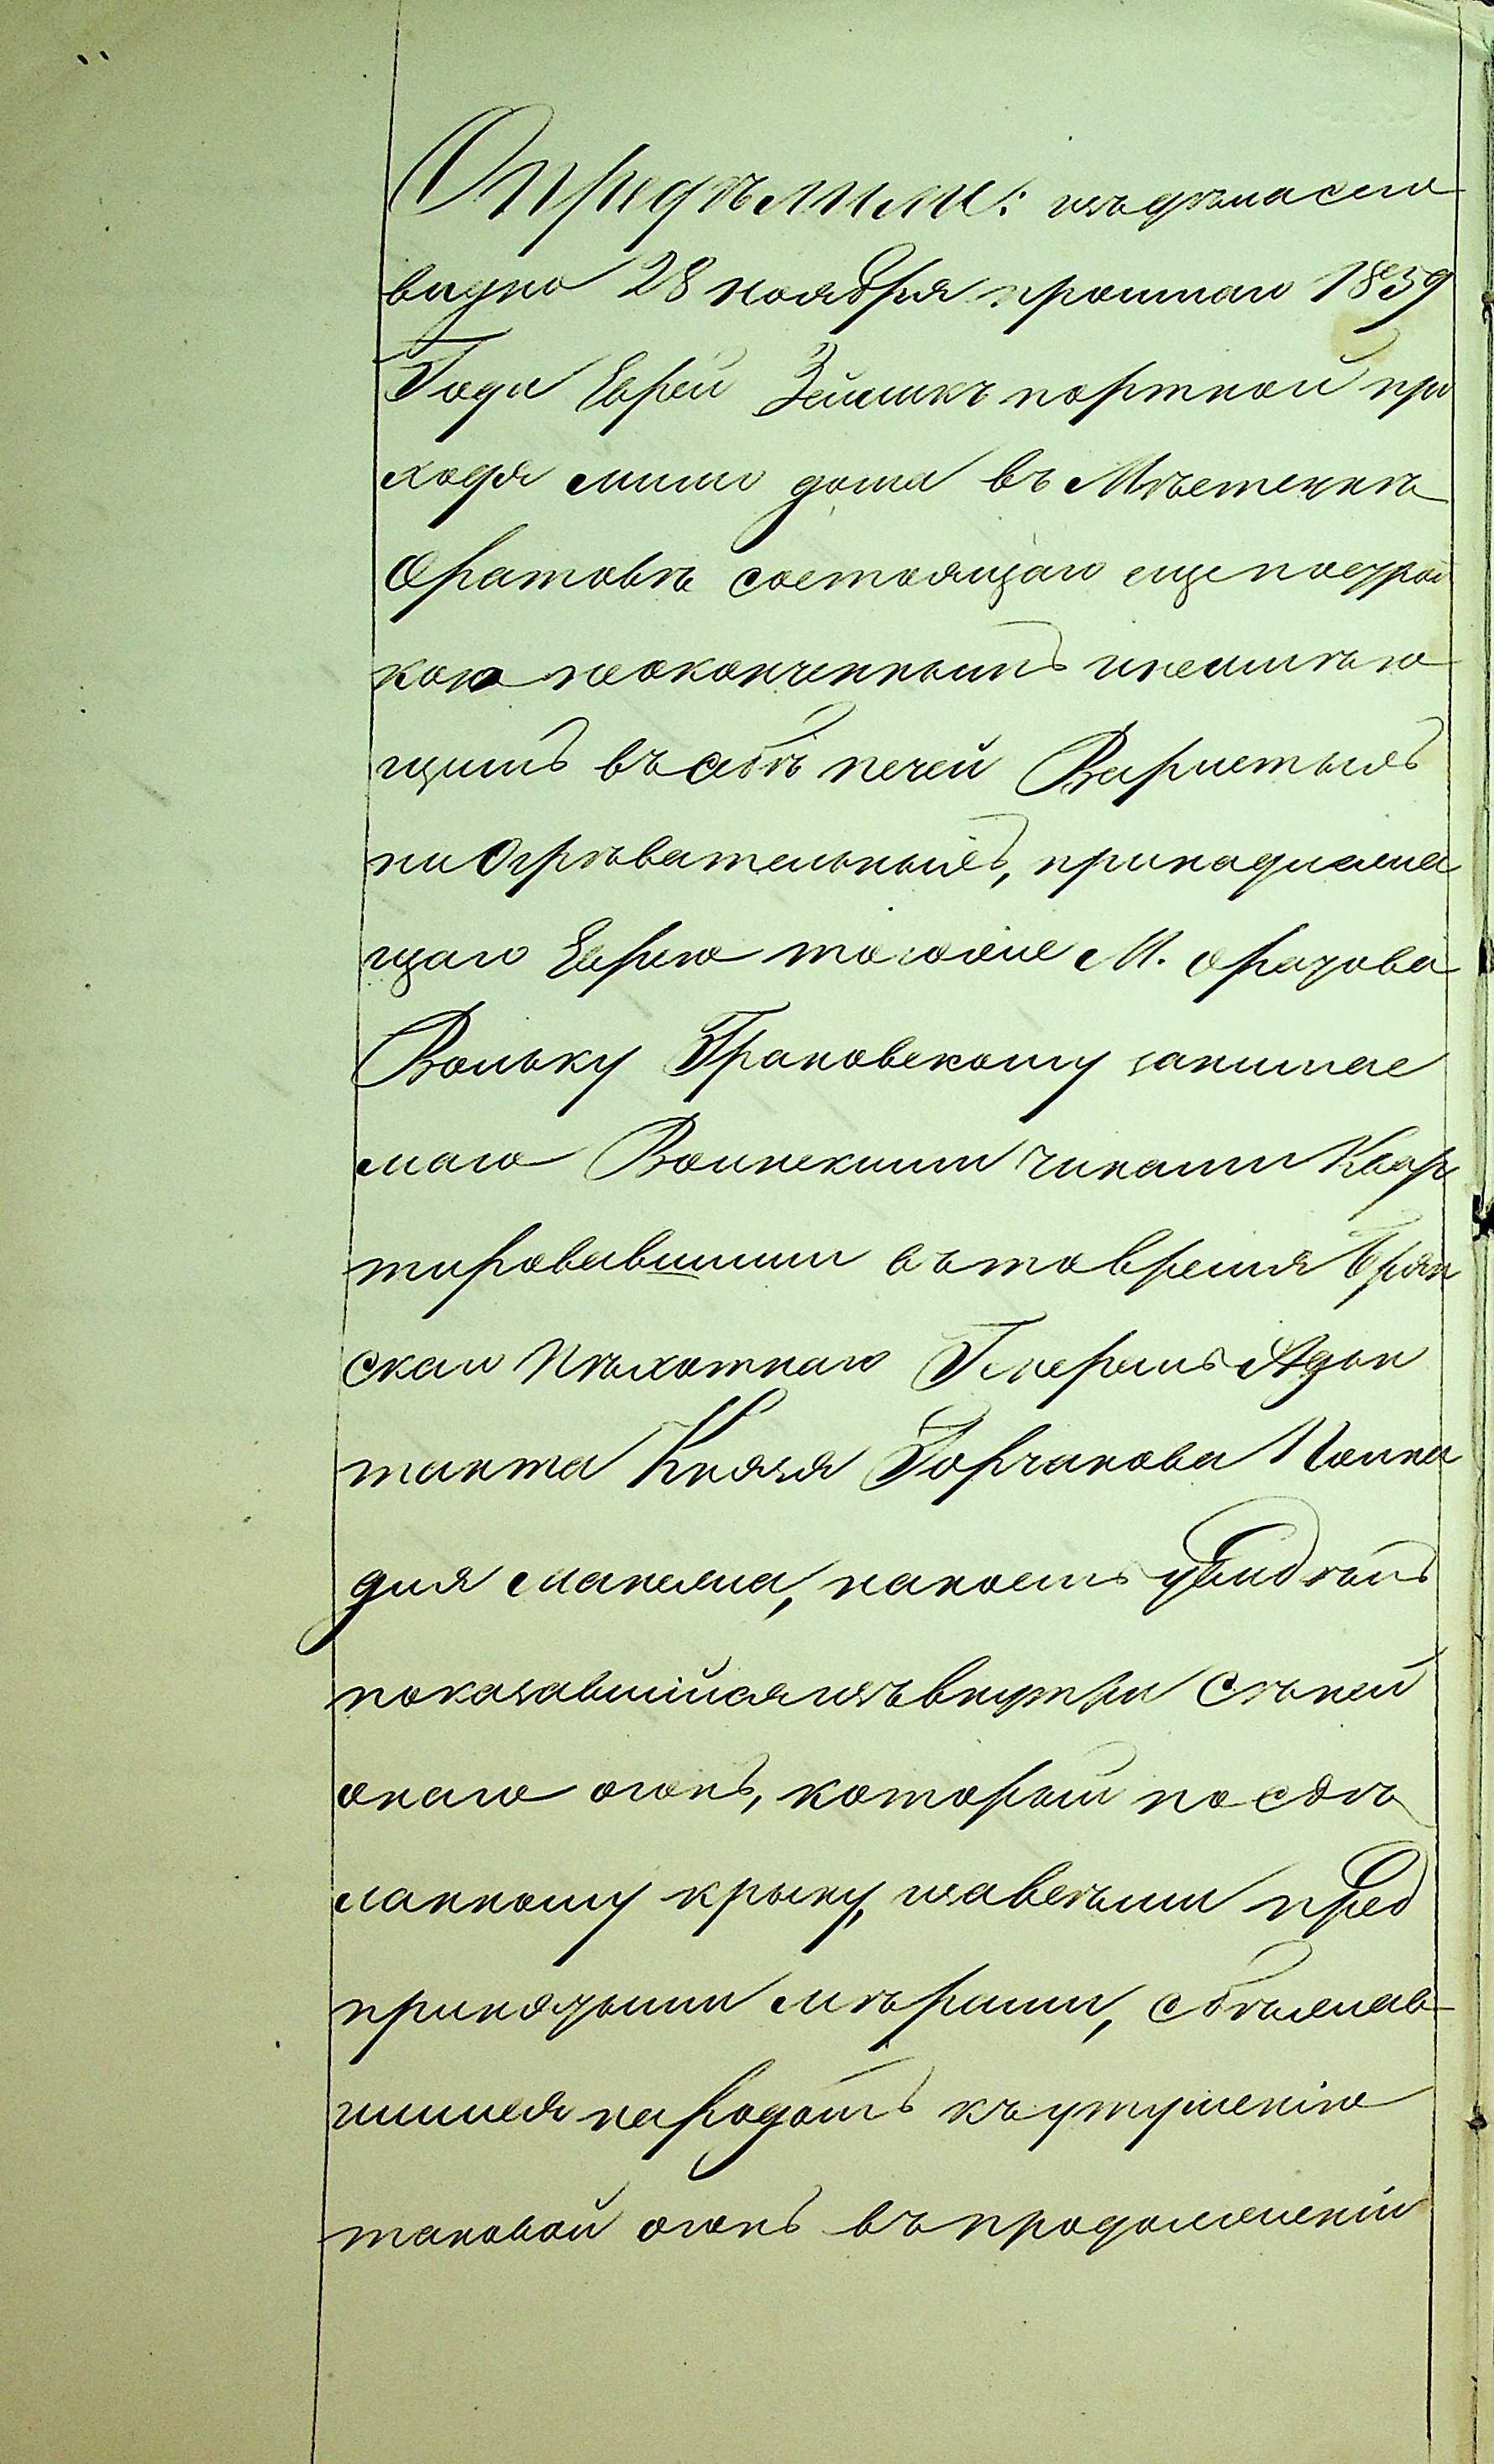 Опредѣлили: изъ дѣла сего
видно 28 ноября прошлаго 1859
Года Еврей Зейликъ портной про
ходя мимо дома въ Мѣстечкѣ
Оратовѣ состоящаго еще построй
кою неоконченнымъ и неимѣю
щимъ въ себѣ печей Варистыхъ
ни Огрѣвательныхъ, принадлежа
щаго Еврею тогоже М. Оратова
Вольку Грановскому занимае
маго Воинскими чинами Квар
тировавшими въ то время Брян
скаго Пѣхотнаго Генералъ Адъю
танта Князя Горчакова Полка
для манежа, на коемъ увидѣлъ
показавшійся изъ внутри Сѣней
онаго огонь, который по сдѣ
ланному крыку, и завсѣми пред
принятыми мѣрами, сбѣжав
шимся народомъ къ утушенію
таковой огонь въ продолженіи